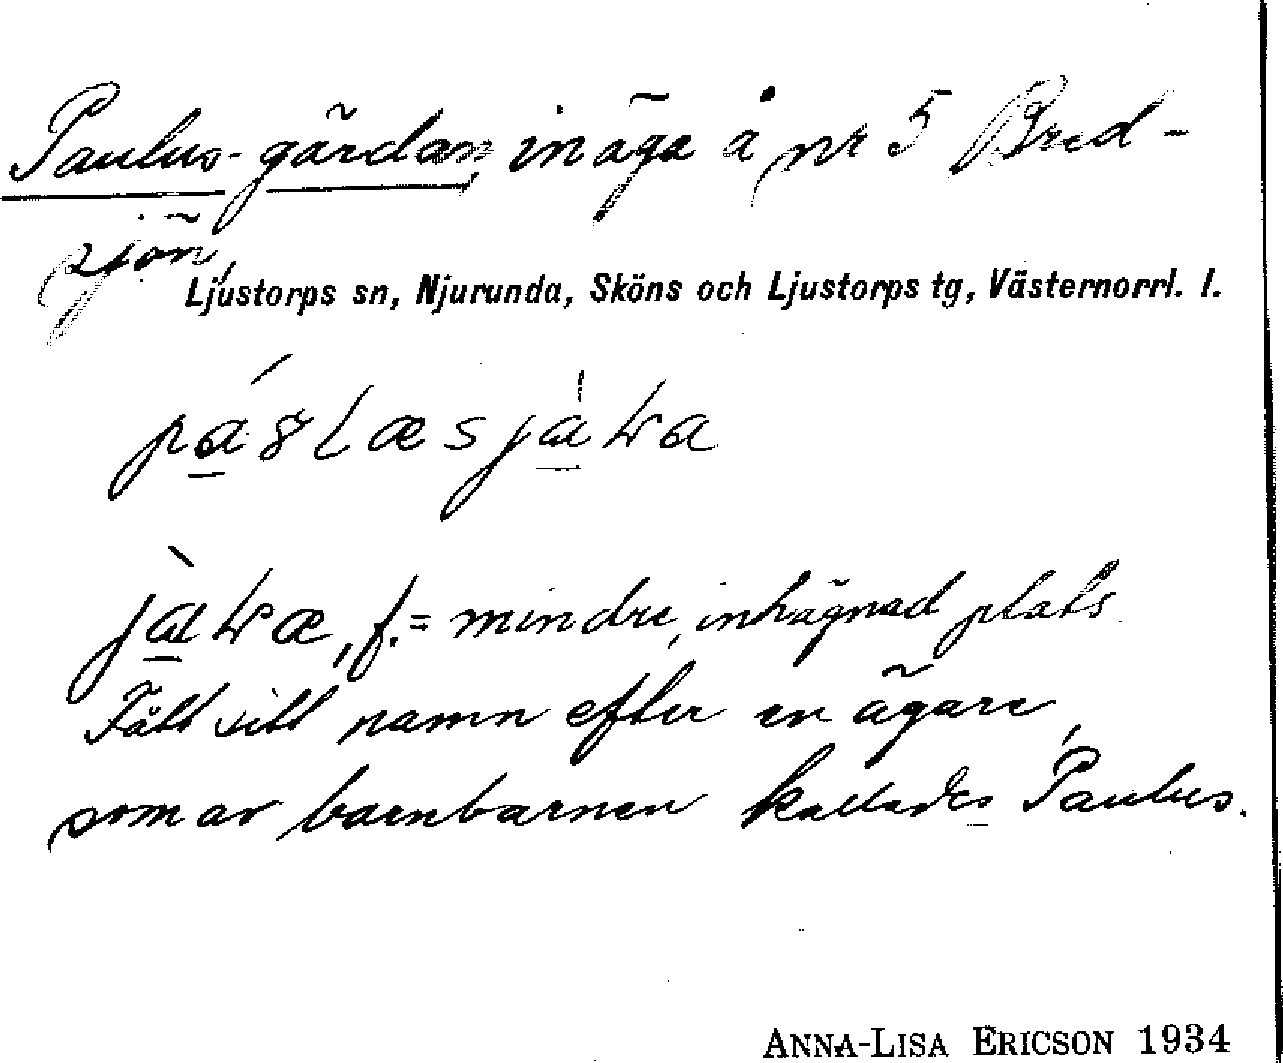 Paulus-gärdan, inäga å nr 5 Bred-
sjön,
Ljustorps sn, Njurunda, Sköns och Ljustorps tg, Västernorrl. l.
f. = mindre, inhägnad plats
Fått sitt namn efter en ägare,
som av barnbarnen kallades Paulus.
ANNA-LISA ERICSON 1934